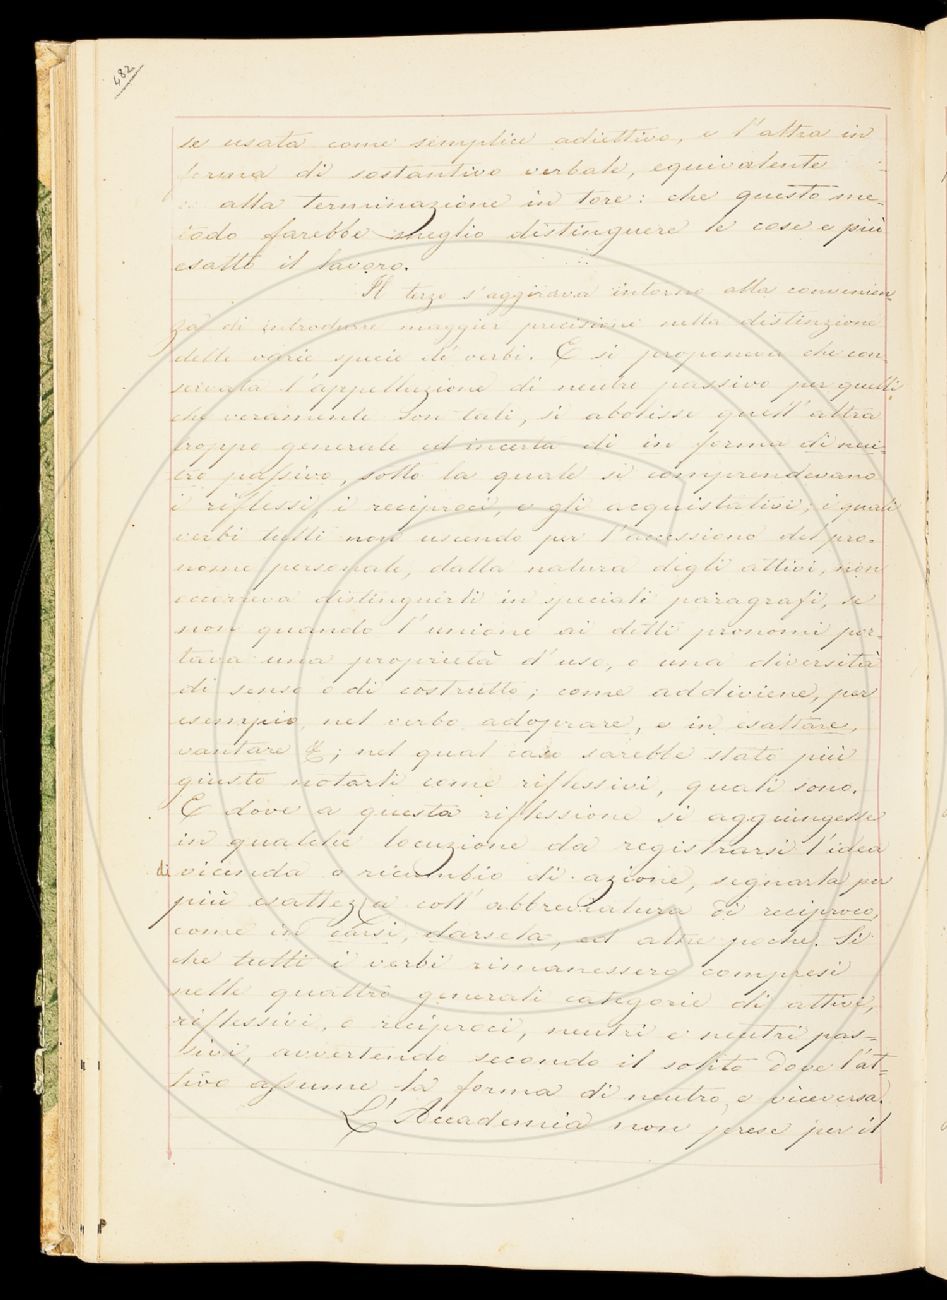 482
se usata come semplice adiettivo, e l'altra in
forma di sostantivo verbale, equivalente
alla terminazione in tore: che questo me-
todo farebbe meglio distinguere le cose e più
esatto il lavoro.
Il terzo s'aggirava intorno alla convenien-
za di introdurre maggior precisione nella distinzione
delle varie specie di verbi. E si proponeva che con-
servata l'appellazione di neutro passivo per quelli
che veramente son tali, si abolisse quell'altra
troppo generale ed incerta di in forma di neu-
tro passivo, sotto la quale si comprendevano
i riflessi, i reciproci, e gli acquistativi; i quali
verbi tutti non uscendo per l'accessione del pro-
nome personale, dalla natura degli attivi, non
occorreva distinguerli in speciali paragrafi, se
non quando l'unione ai detti pronomi por-
tava una proprietà d'uso, o una diversità
di senso o di costrutto; come addiviene, per
esempio, nel verbo adoprare, e in esaltare,
vantare &; nel qual caso sarebbe stato più
giusto notarli come riflessivi, quali sono.
E dove a questa riflessione si aggiungesse
in qualche locuzione da registrarsi l'idea
di vicenda o ricambio di azione, segnarla per
più esattezza coll'abbreviatura di reciproco,
come in darsi, darsela, ed altre poche. Sì
che tutti i verbi rimanessero compresi
nelle quattro generali categorie di attivi,
riflessivi, o reciproci, neutri e neutri pas-
sivi, avvertendo secondo il solito dove l'at-
tivo assume la forma di neutro, e viceversa.
L'Accademia non prese per il